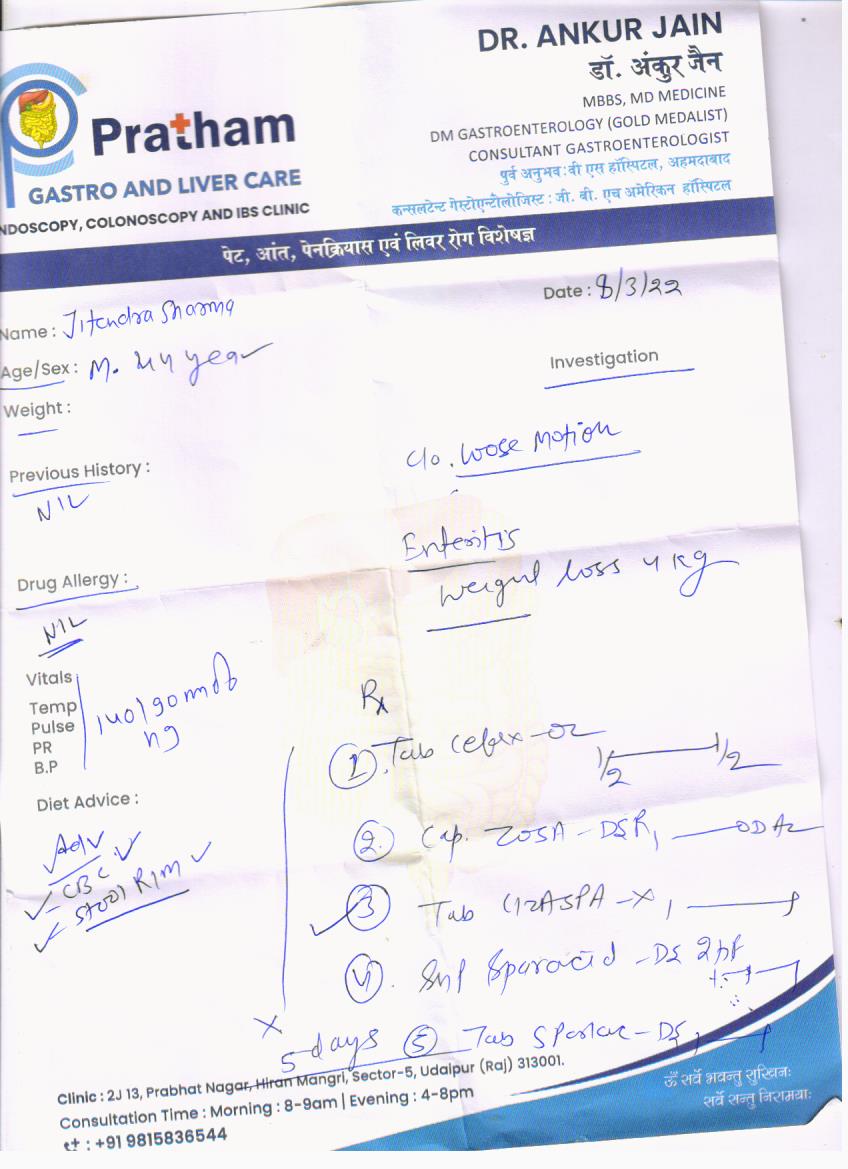 DR. ANKUR JAIN
डॉ. अंकुर जैन
MBBS, MD MEDICINE
DM GASTROENTEROLOGY (GOLD MEDALIST)
CONSULTANT GASTROENTEROLOGIST
पुर्व अनुभव : वी एस हॉस्पिटल, अहमदाबाद
कन्सलटेन्ट गेस्ट्रोएन्टोलोजिस्ट : जी. बी. एच अमेरिकन हॉस्पिटल
Pratham
GASTRO AND LIVER CARE
NDOSCOPY, COLONOSCOPY AND IBS CLINIC
पेट, आंत, पेनक्रियास एवं लिवर रोग विशेषज्ञ
Date : 8/3/22
Name : Jitendra Sharma
Age/Sex : M. 44 year
Investigation
Weight :
C/o. Loose Motion
Previous History :
NIL
Enteritis
Weight loss 4 kg
Drug Allergy :
NIL
Vitals
Temp
Pulse
PR
B.P
140/90 mm
Rx
1. Tab Cefix-OZ 1/2 1/2
Diet Advice :
2. Cap. ZOSA-DSR,
Adv
CBC
Stool R/M
3 Tab
4.
5 days 5 Tab
Clinic : 2J 13, Prabhat Nagar, Hiran Mangri, Sector-5, Udaipur (Raj) 313001.
Consultation Time : Morning : 8-9am | Evening : 4-8pm
: +91 9815836544
ॐ सर्वे भवन्तु सुखिनः
सर्वे सन्तु निरामयाः